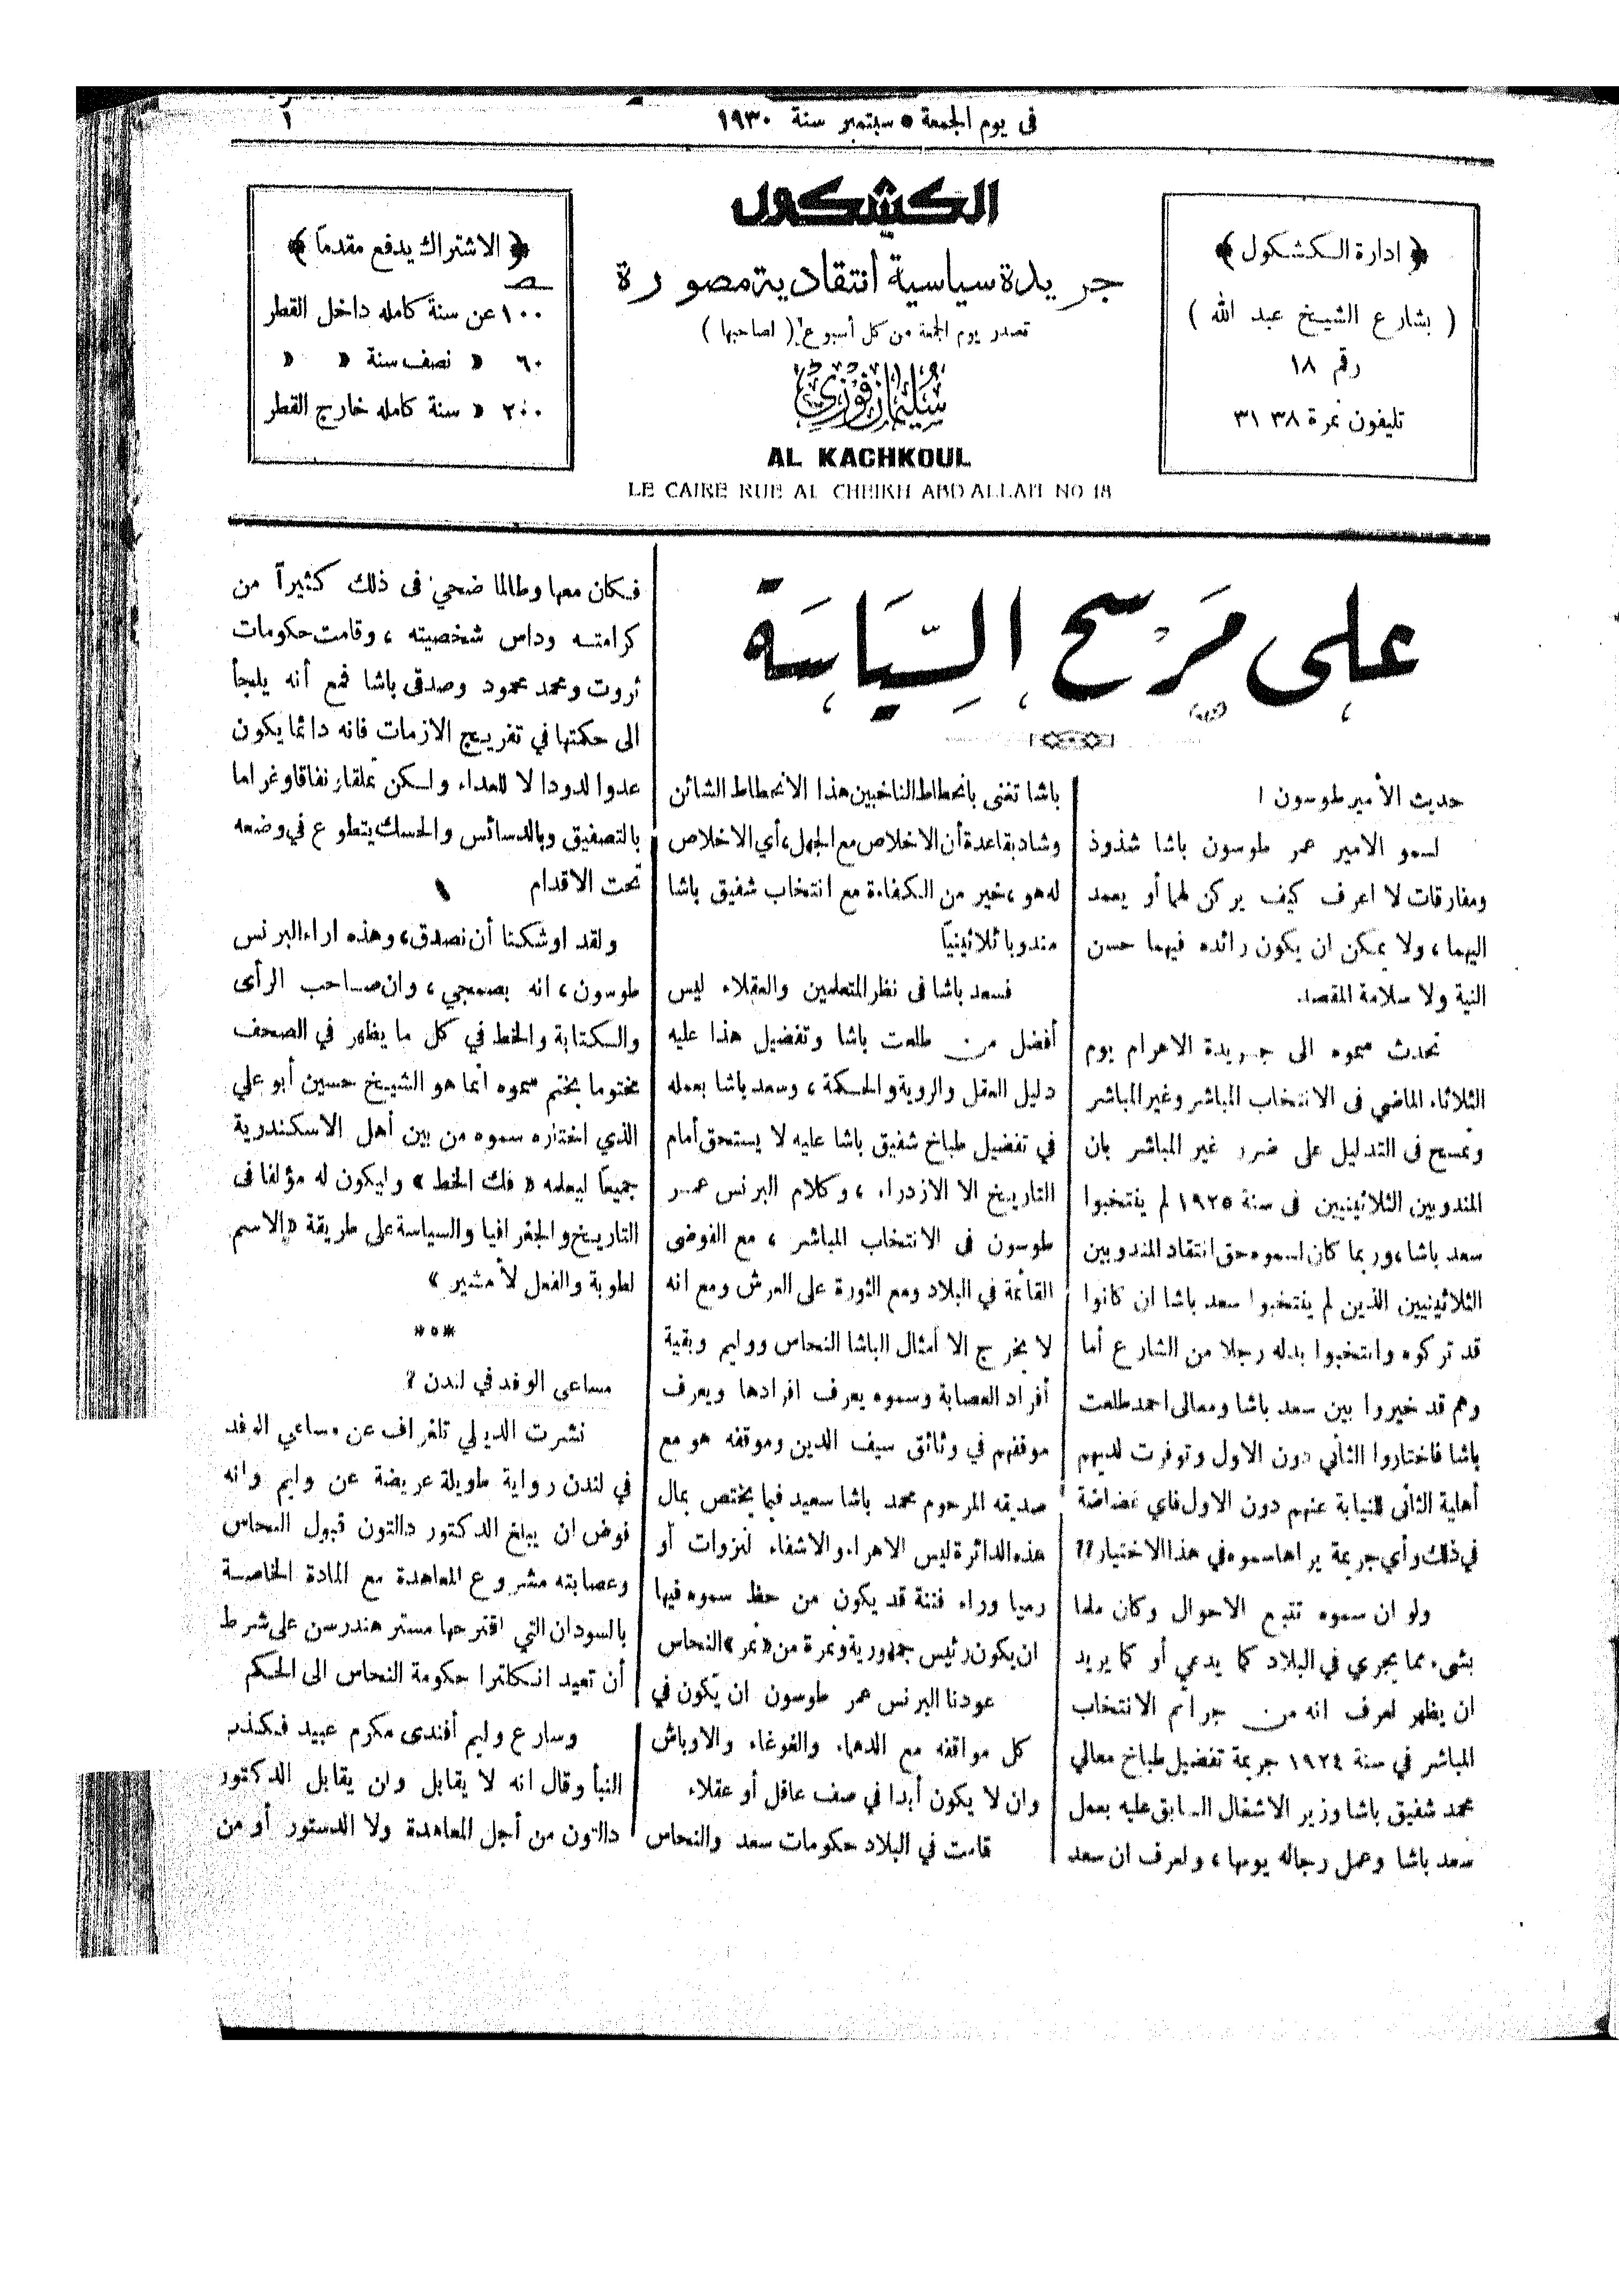 فى يوم الجمعة ٥ سبتمبر سنة ١٩٣٠
١
﴿ ادارة الكشكول ﴾
( بشارع الشيخ عبد الله )
رقم ١٨
تليفون نمرة ٣٨ ٣١
الكشكول
جريدة سياسية انتقادية مصورة
تصدر يوم الجمعة من كل أسبوع ( لصاحبها )
سليمان فوزي
AL KACHKOUL
LE CAIRE RUE AL CHEIKH ABD ALLAH NO 18
﴿ الاشتراك يدفع مقدماً ﴾
١٠٠ عن سنة كامله داخل القطر
٦٠ « نصف سنة « «
٢٠٠ « سنة كامله خارج القطر
على مرسح السياسة
حديث الأمير طوسون !
لسمو الامير عمر طوسون باشا شذوذ
ومفارقات لا اعرف كيف يركن لهما أو يعمد
اليهما ، ولا يمكن ان يكون رائده فيهما حسن
النية ولا سلامة المقصد.
تحدث سموه الى جريدة الاهرام يوم
الثلاثاء الماضى فى الانتخاب المباشر وغير المباشر
وتمسح فى التدليل على ضرر غير المباشر بان
المندوبين الثلاثينيين فى سنة ١٩٢٥ لم ينتخبوا
سعد باشا ، وربما كان لسموه حق انتقاد المندوبين
الثلاثينيين الذين لم ينتخبوا سعد باشا ان كانوا
قد تركوه وانتخبوا بدله رجلا من الشارع أما
وهم قد خيروا بين سعد باشا ومعالى احمد طلعت
باشا فاختاروا الثاني دون الاول وتوفرت لديهم
أهلية الثانى للنيابة عنهم دون الاول فاي غضاضة
في ذلك وأي جريمة يراها سموه في هذا الاختيار ؟؟
ولو ان سموه تتبع الاحوال وكان ملما
بشىء مما يجري في البلاد كما يدعي أو كما يريد
ان يظهر لعرف انه من جرائم الانتخاب
المباشر في سنة ١٩٢٤ جريمة تفضيل طباخ معالي
محمد شفيق باشا وزير الاشغال السابق عليه بعمل
سعد باشا وعمل رجاله يومها ، ولعرف ان سعد
باشا تغنى بانحطاط الناخبين هذا الانحطاط الشائن
وشاد بقاعدة أن الاخلاص مع الجهل ، أي الاخلاص
له هو ، خير من الكفاءة مع انتخاب شفيق باشا
مندوبا ثلاثينياً
فسعد باشا فى نظر المتعلمين والعقلاء ليس
أفضل من طلعت باشا وتفضيل هذا عليه
دليل العقل والروية والحكمة ، وسعد باشا بعمله
في تفضيل طباخ شفيق باشا عليه لا يستحق أمام
التاريخ الا الازدراء ، وكلام البرنس عمر
طوسون فى الانتخاب المباشر ، مع الفوضى
القائمة في البلاد ومع الثورة على العرش ومع انه
لا يخرج الا أمثال الباشا النحاس ووليم وبقية
أفراد العصابة وسموه يعرف افرادها ويعرف
موقفهم في وثائق سيف الدين وموقفه هو مع
صديقه المرحوم محمد باشا سعيد فيما يختص بمال
هذه الدائرة ليس الاهراء والاشفاء لنزوات أو
رميا وراء فتنة قد يكون من حظ سموه فيها
ان يكون رئيس جمهورية ونمرة من « نمر » النحاس
عودنا البرنس عمر طوسون ان يكون في
كل مواقفه مع الدهماء والغوغاء والاوباش
وان لا يكون أبدا في صف عاقل أو عقلاء
قامت في البلاد حكومات سعد والنحاس
فكان معها وطالما ضحي فى ذلك كثيراً من
كرامته وداس شخصيته ، وقامت حكومات
ثروت ومحمد محمود وصدقى باشا فمع أنه يلجأ
الى حكمتها في تفريج الازمات فانه دائما يكون
عدوا لدودا لا للعداء ولكن تملقا ونفاقا وغراما
بالتصفيق وبالدسائس والحسك يتطوع في وضعه
تحت الاقدام
ولقد اوشكنا أن نصدق ، وهذه اراء البرنس
طوسون ، انه بصمجي ، وان صاحب الرأى
والكتابة والخط في كل ما يظهر في الصحف
مختوما بختم سموه انما هو الشيخ حسين أبو علي
الذي اختاره سموه من بين أهل الاسكندرية
جميعاً ليعلمه « فك الخط » وليكون له مؤلفا فى
التاريخ والجغرافيا والسياسة على طريقة « الاسم
لطوبة والفعل لأمشير »
***
مساعى الوفد في لندن ؟
نشرت الديلي تلغراف عن مساعي الوفد
في لندن رواية طويلة عريضة عن وليم وانه
فوض ان يبلغ الدكتور دالتون قبول النحاس
وعصابته مشروع المعاهدة مع المادة الخاصة
بالسودان التي اقترحها مستر هندرسن على شرط
أن تعيد انكلترا حكومة النحاس الى الحكم
وسارع وليم أفندى مكرم عبيد فكذب
النبأ وقال انه لا يقابل ولن يقابل الدكتور
دالتون من أجل المعاهدة ولا الدستور أو من